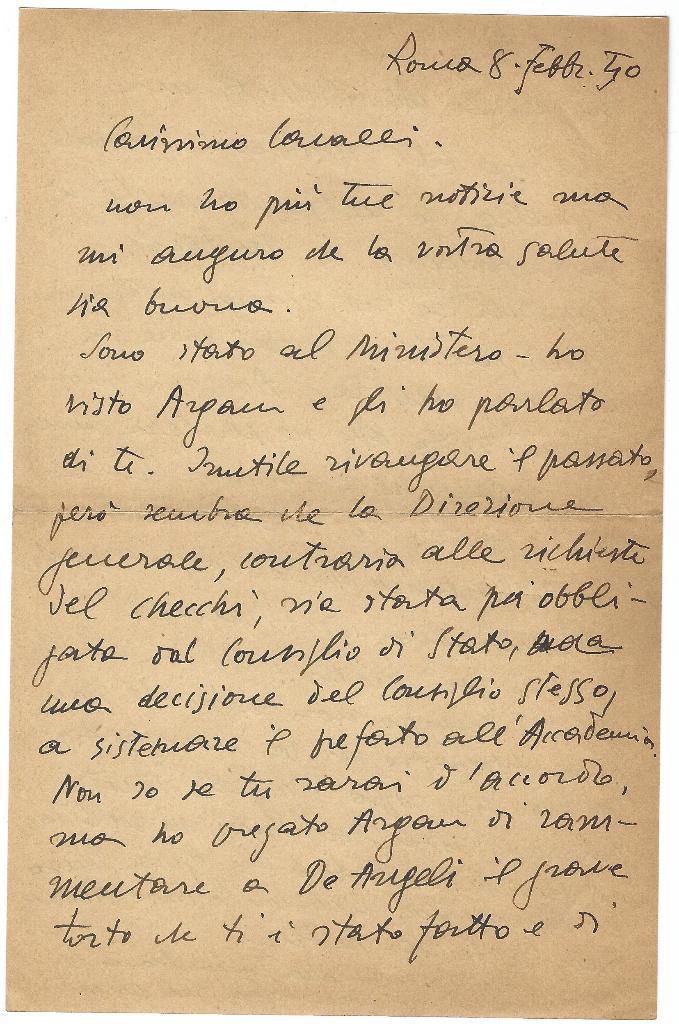 Roma 8. Febbr. 50
Carissimo Cavalli.
non ho più tue notizie ma
mi auguro che la vostra salute
sia buona.
Sono stato al Ministero - ho
visto Argan e gli ho parlato
di te. Inutile rivangare il passato,
però sembra che la Direzione
generale, contraria alle richieste
del Checchi, sia stata poi obbli-
gata dal Consiglio di Stato, da
una decisione del Consiglio stesso,
a sistemare il prefato all'Accademia.
Non so se tu sarai d'accordo,
ma ho pregato Argan di ram-
mentare a De Angeli il grave
torto che ti è stato fatto e di